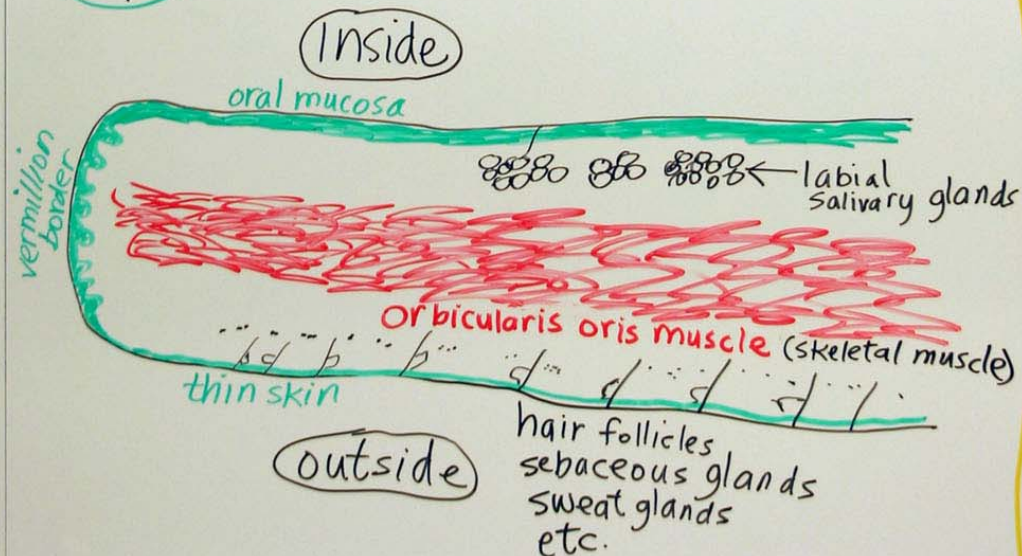 Inside
oral mucosa
vermillion
border
labial
salivary glands
orbicularis oris muscle (skeletal muscle)
thin skin
hair follicles
sebaceous glands
sweat glands
etc.
outside